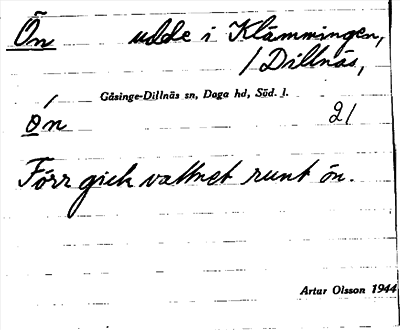 Ön udde i Klämmingen,
/ Dillnäs,
Gåsinge-Dillnäs sn, Daga hd, Söd. l.
ón 21
Förr gick vattnet runt ön.
Artur Olsson 1944